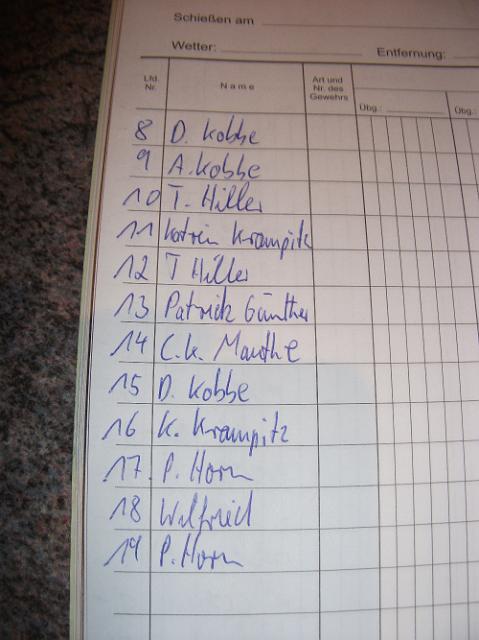 Schießen am
Wetter: Entfernung:
Lfd. Nr. Name Art und Nr. des Gewehrs
Übg.: Übg.:
8 D. Kobbe
9 A. Kobbe
10 T. Hiller
11 Katrin Krampitz
12 T Hiller
13 Patrick Günther
14 C.K. Mauthe
15 D. Kobbe
16 K. Krampitz
17. P. Horn
18 Wilfried
19 P. Horn